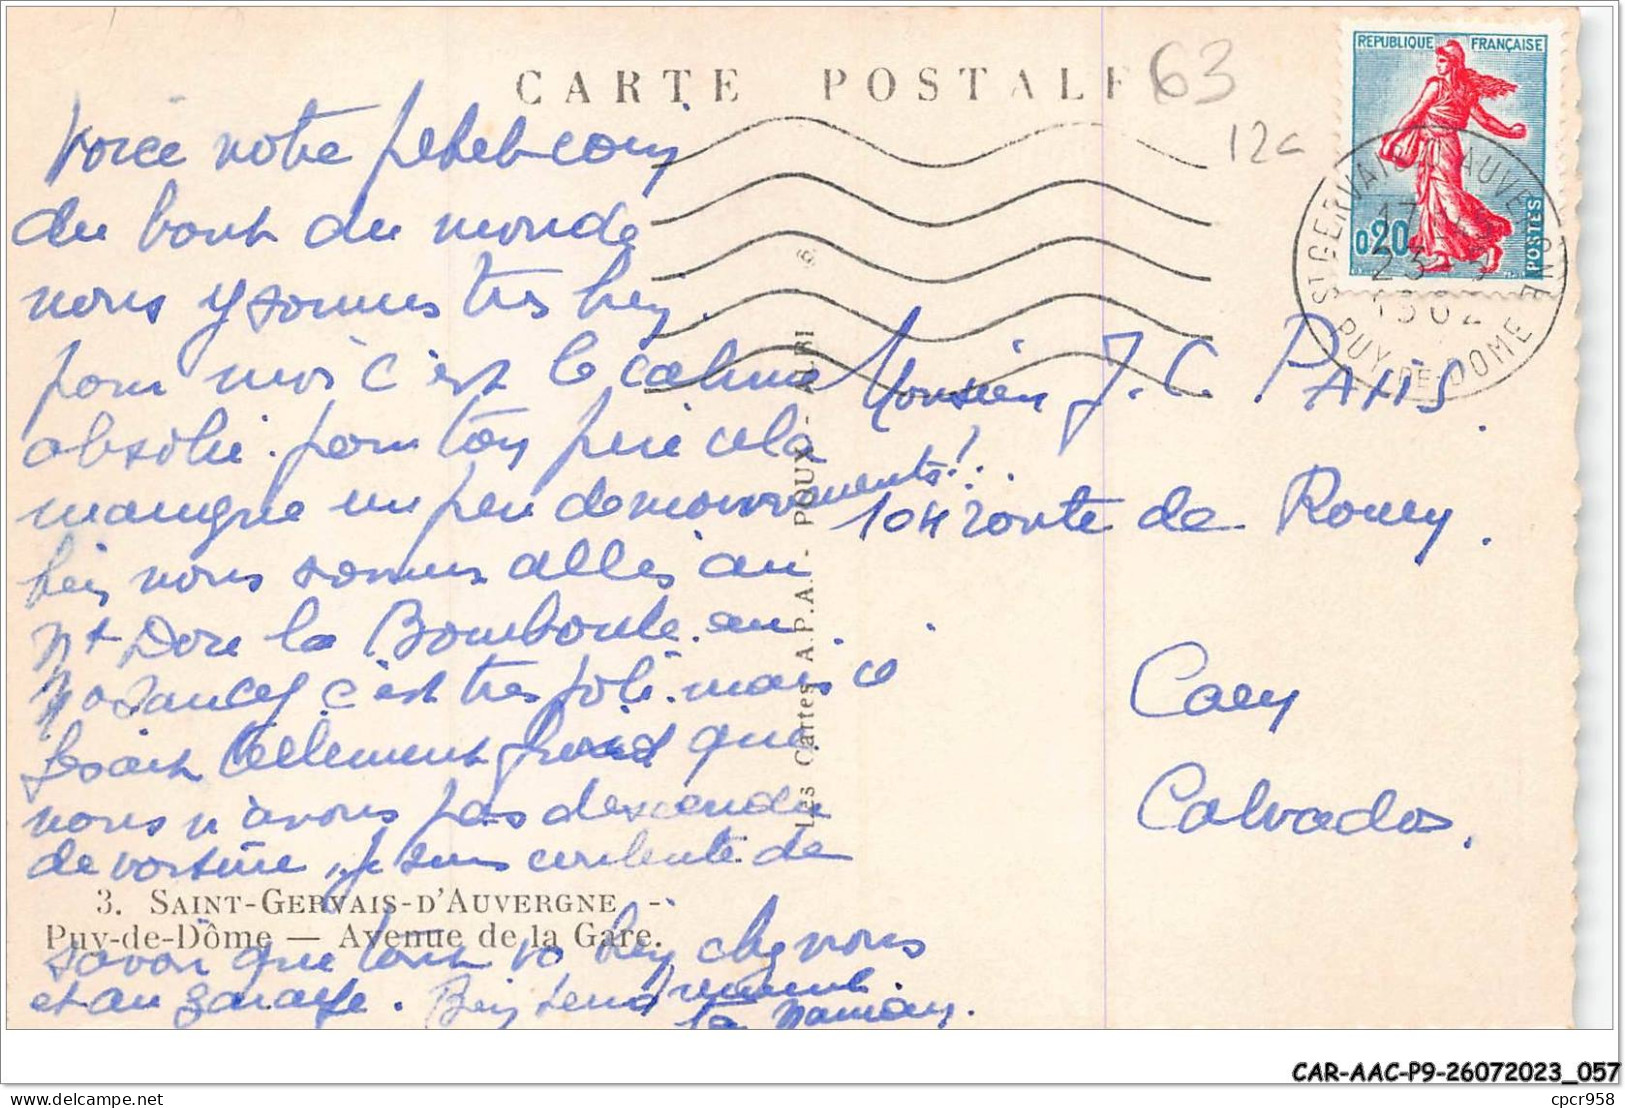 CARTE POSTALE
63
12c
REPUBLIQUE FRANÇAISE
0,20
POSTES
ST GERVAIS D'AUVERGNE
PUY-DE-DOME
17
23-3
1962
Voici notre petit coin
du bout du monde
nous y sommes très bien.
pour moi c'est le calme
absolu. pour ton père cela
manque un peu de mouvements!..
hier nous sommes allés au
Mt Dore la Bourboule. au
c'est très joli. mais il
faisait tellement froid que
nous n'avons pas descendu
de voiture, je suis contente de
savoir que tout va bien chez vous
et au garage. Bien tendrement.
la maman.
Monsieur J. C. PARIS.
104 route de Rouen.
Caen
Calvados.
Les Cartes A.P.A. - POUX - ALBI
3. SAINT-GERVAIS-D'AUVERGNE -
Puy-de-Dôme — Avenue de la Gare.
CAR-AAC-P9-26072023_057
cpcr958